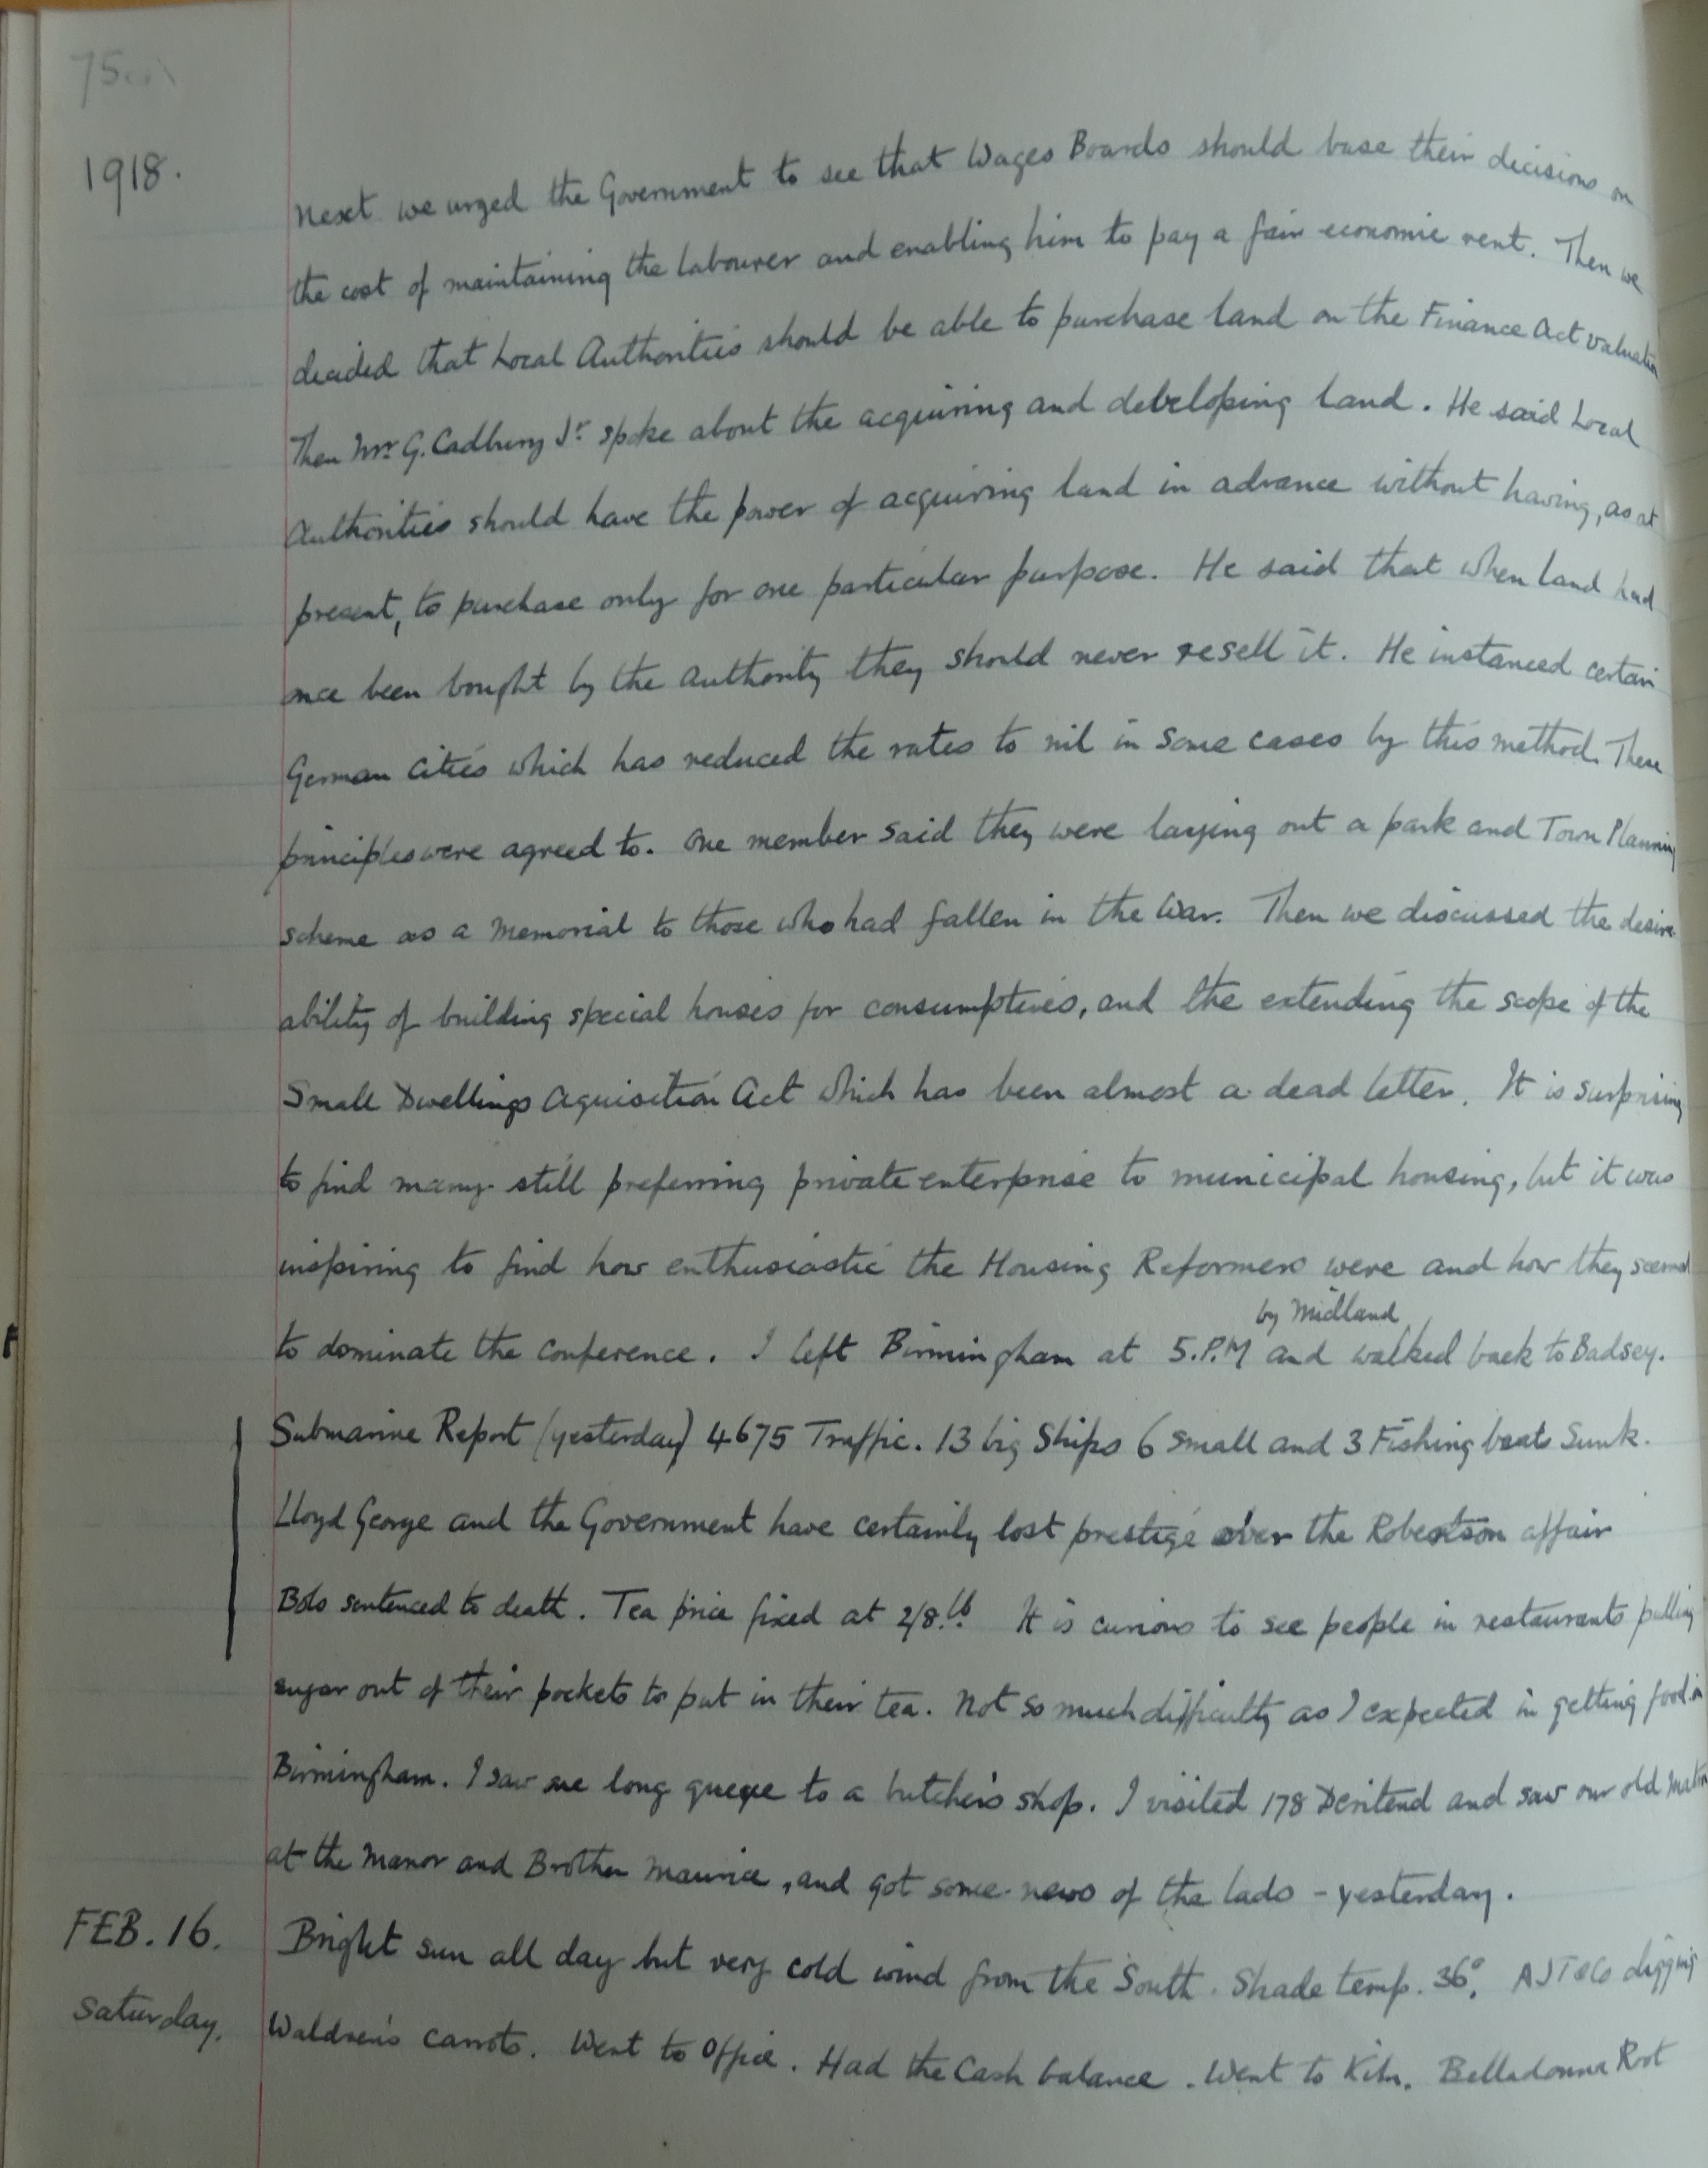 1918.
Next we urged the Government to see that Wages Boards should base their decisions on
the cost of maintaining the labourer and enabling him to pay a fair economic rent. Then we
decided that Local Authorities should be able to purchase land on the Finance Act valuation
Then Mr. G. Cadbury Jr. spoke about the acquiring and developing land. He said Local
Authorities should have the power of acquiring land in advance without having, as at
present, to purchase only for one particular purpose. He said that when land had
once been bought by the authority they should never resell it. He instanced certain
German cities which has reduced the rates to nil in some cases by this method. These
principles were agreed to. One member said they were laying out a park and Town Planning
scheme as a Memorial to those who had fallen in the War. Then we discussed the desire-
ability of building special houses for consumptives, and the extending the scope of the
Small Dwellings Aquisition Act which has been almost a dead letter. It is surprising
to find many still preferring private enterprise to municipal housing, but it was
inspiring to find how enthusiastic the Housing Reformers were and how they seemed
by Midland
to dominate the conference. I left Birmingham at 5.P.M and walked back to Badsey.
Submarine Report (yesterday) 4675 Traffic. 13 big Ships 6 small and 3 Fishing boats Sunk.
Lloyd George and the Government have certainly lost prestige over the Robertson affair
Bolo sentenced to death. Tea price fixed at 2/8 lb It is curious to see people in restaurants pulling
sugar out of their pockets to put in their tea. Not so much difficulty as I expected in getting food in
Birmingham. I saw one long queue to a butcher's shop. I visited 178 Deritend and saw our old
at the Manor and Brother Maurice, and got some news of the lads - yesterday.
FEB. 16. Bright sun all day but very cold wind from the South. Shade temp. 36°. AJT & Co digging
Saturday. Waldren's carrots. Went to Office. Had the Cash balance. Went to Kiln. Belladonna Root